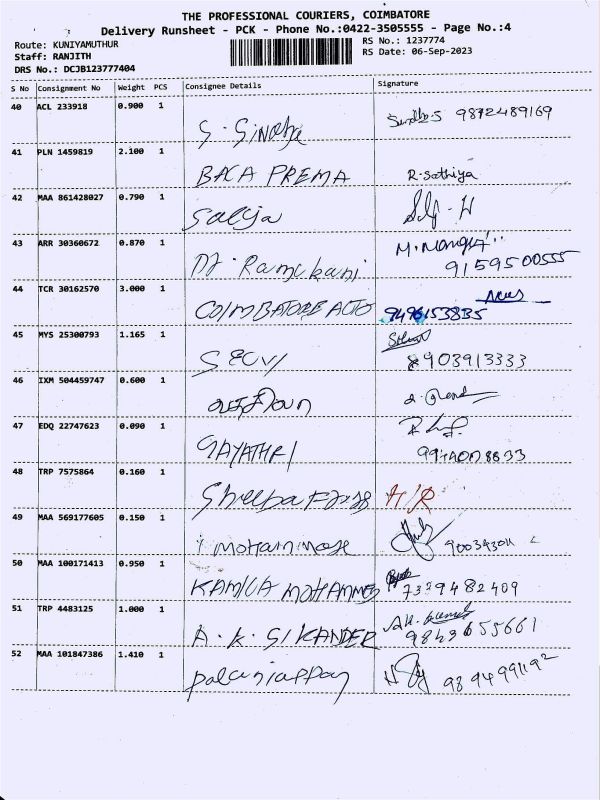 THE PROFESSIONAL COURIERS, COIMBATORE
Delivery Runsheet - PCK - Phone No.:0422-3505555 - Page No.:4
Route: KUNIYAMUTHUR RS No.: 1237774
Staff: RANJITH RS Date: 06-Sep-2023
DRS No.: DCJB123777404
S No Consignment No Weight PCS Consignee Details Signature
40 ACL 233918 0.900 1 9872489169
S. 
41 PLN 1459819 2.100 1
BACA PREMA R. Sathiya
42 MAA 861428027 0.790 1
Salija
43 ARR 30360672 0.870 1 M.
9159500555
44 TCR 30162570 3.000 1
COIMBATORE AUTO 9496153835
45 MYS 25300793 1.165 1
8903913333
46 IXM 504459747 0.600 1
47 EDQ 22747623 0.090 1
GAYATHRI
48 TRP 7575864 0.160 1
Sheeba H/R
49 MAA 569177605 0.150 1
50 MAA 100171413 0.950 1
KAMILA MOHAMMED 7339482409
51 TRP 4483125 1.000 1
A. K. SIKANDER 9843655661
52 MAA 101847386 1.410 1
Palaniappan 9894991192